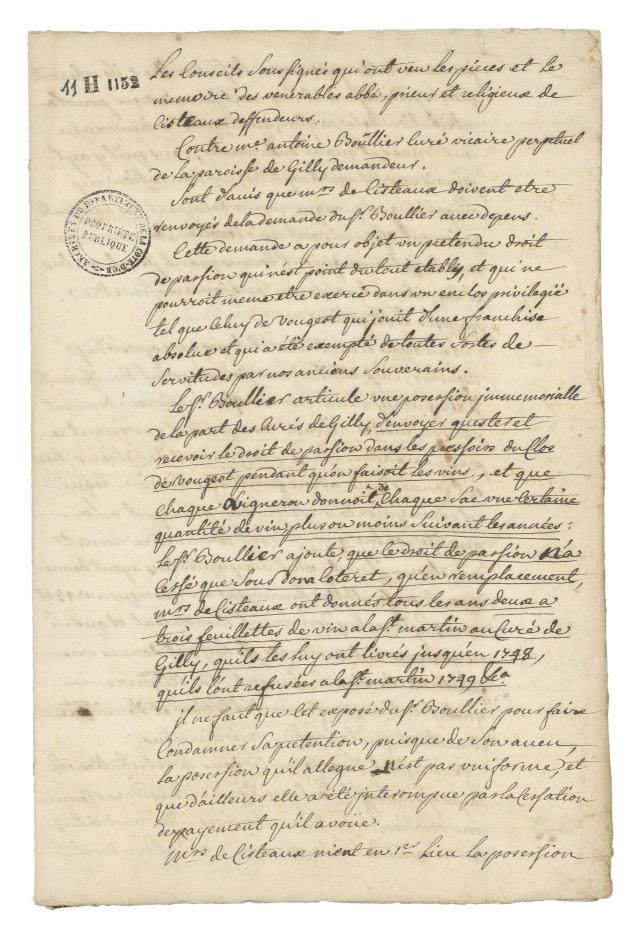 11 H 1152
ARCHIVES DU DÉPARTEMENT DE LA CÔTE-D'OR
PROPRIÉTÉ
PUBLIQUE
Les Conseils Soussignés qui ont veu les pieces et le
memoire des venerables abbé, prieur et religieux de
Cisteaux deffendeurs.
Contre me. antoine Boüllier Curé vicaire perpetuel
de la paroisse de Gilly demandeur.
Sont d'auis que mrs de Cisteaux doivent etre
renvoyés de la demande du Sr. Boullier avec depens.
Cette demande a pour objet vn pretendu droit
de passion qui n'est point du tout etably, et qui ne
pourroit meme etre exercé dans vn enclos privilegié
tel que Celuy de Vougeot qui joüit d'une franchise
absolue et qui a été exempté de toutes Sortes de —
Servitudes par nos anciens Souverains.
Le Sr. Boullier articule vne posession jmmemorialle
de la part des Curés de Gilly, d'envoyer quester et
recevoir le droit de passion dans les pressoirs du Clos
de Vougeot pendant qu'on faisoit les vins., et que
Chaque Vigneron donnoit de Chaque Sac vne Certaine
quantité de vin plus ou moins Suivant les années:
Le Sr. Boullier ajoute que le droit de passion n'a
Cessé que Sous dona loteret, qu'en remplacement,
mrs de Cisteaux ont donnés tous les ans deux a
trois feuillettes de vin a la St. martin au Curé de
Gilly, qu'ils les luy ont livrés jusqu'en 1748,
qu'ils l'ont refusées a la St. martin 1749 &a
jl ne faut que Cet exposé du Sr. Boullier pour faire
Condamner Sa pretention, puisque de Son aveu,
la posession qu'il allegue n'est pas vniforme, et
que d'ailleurs elle a été jnterompue, par la Cessation
de payement qu'il avoüe.
Mrs de Cisteaux nient en 1er Lieu la posession